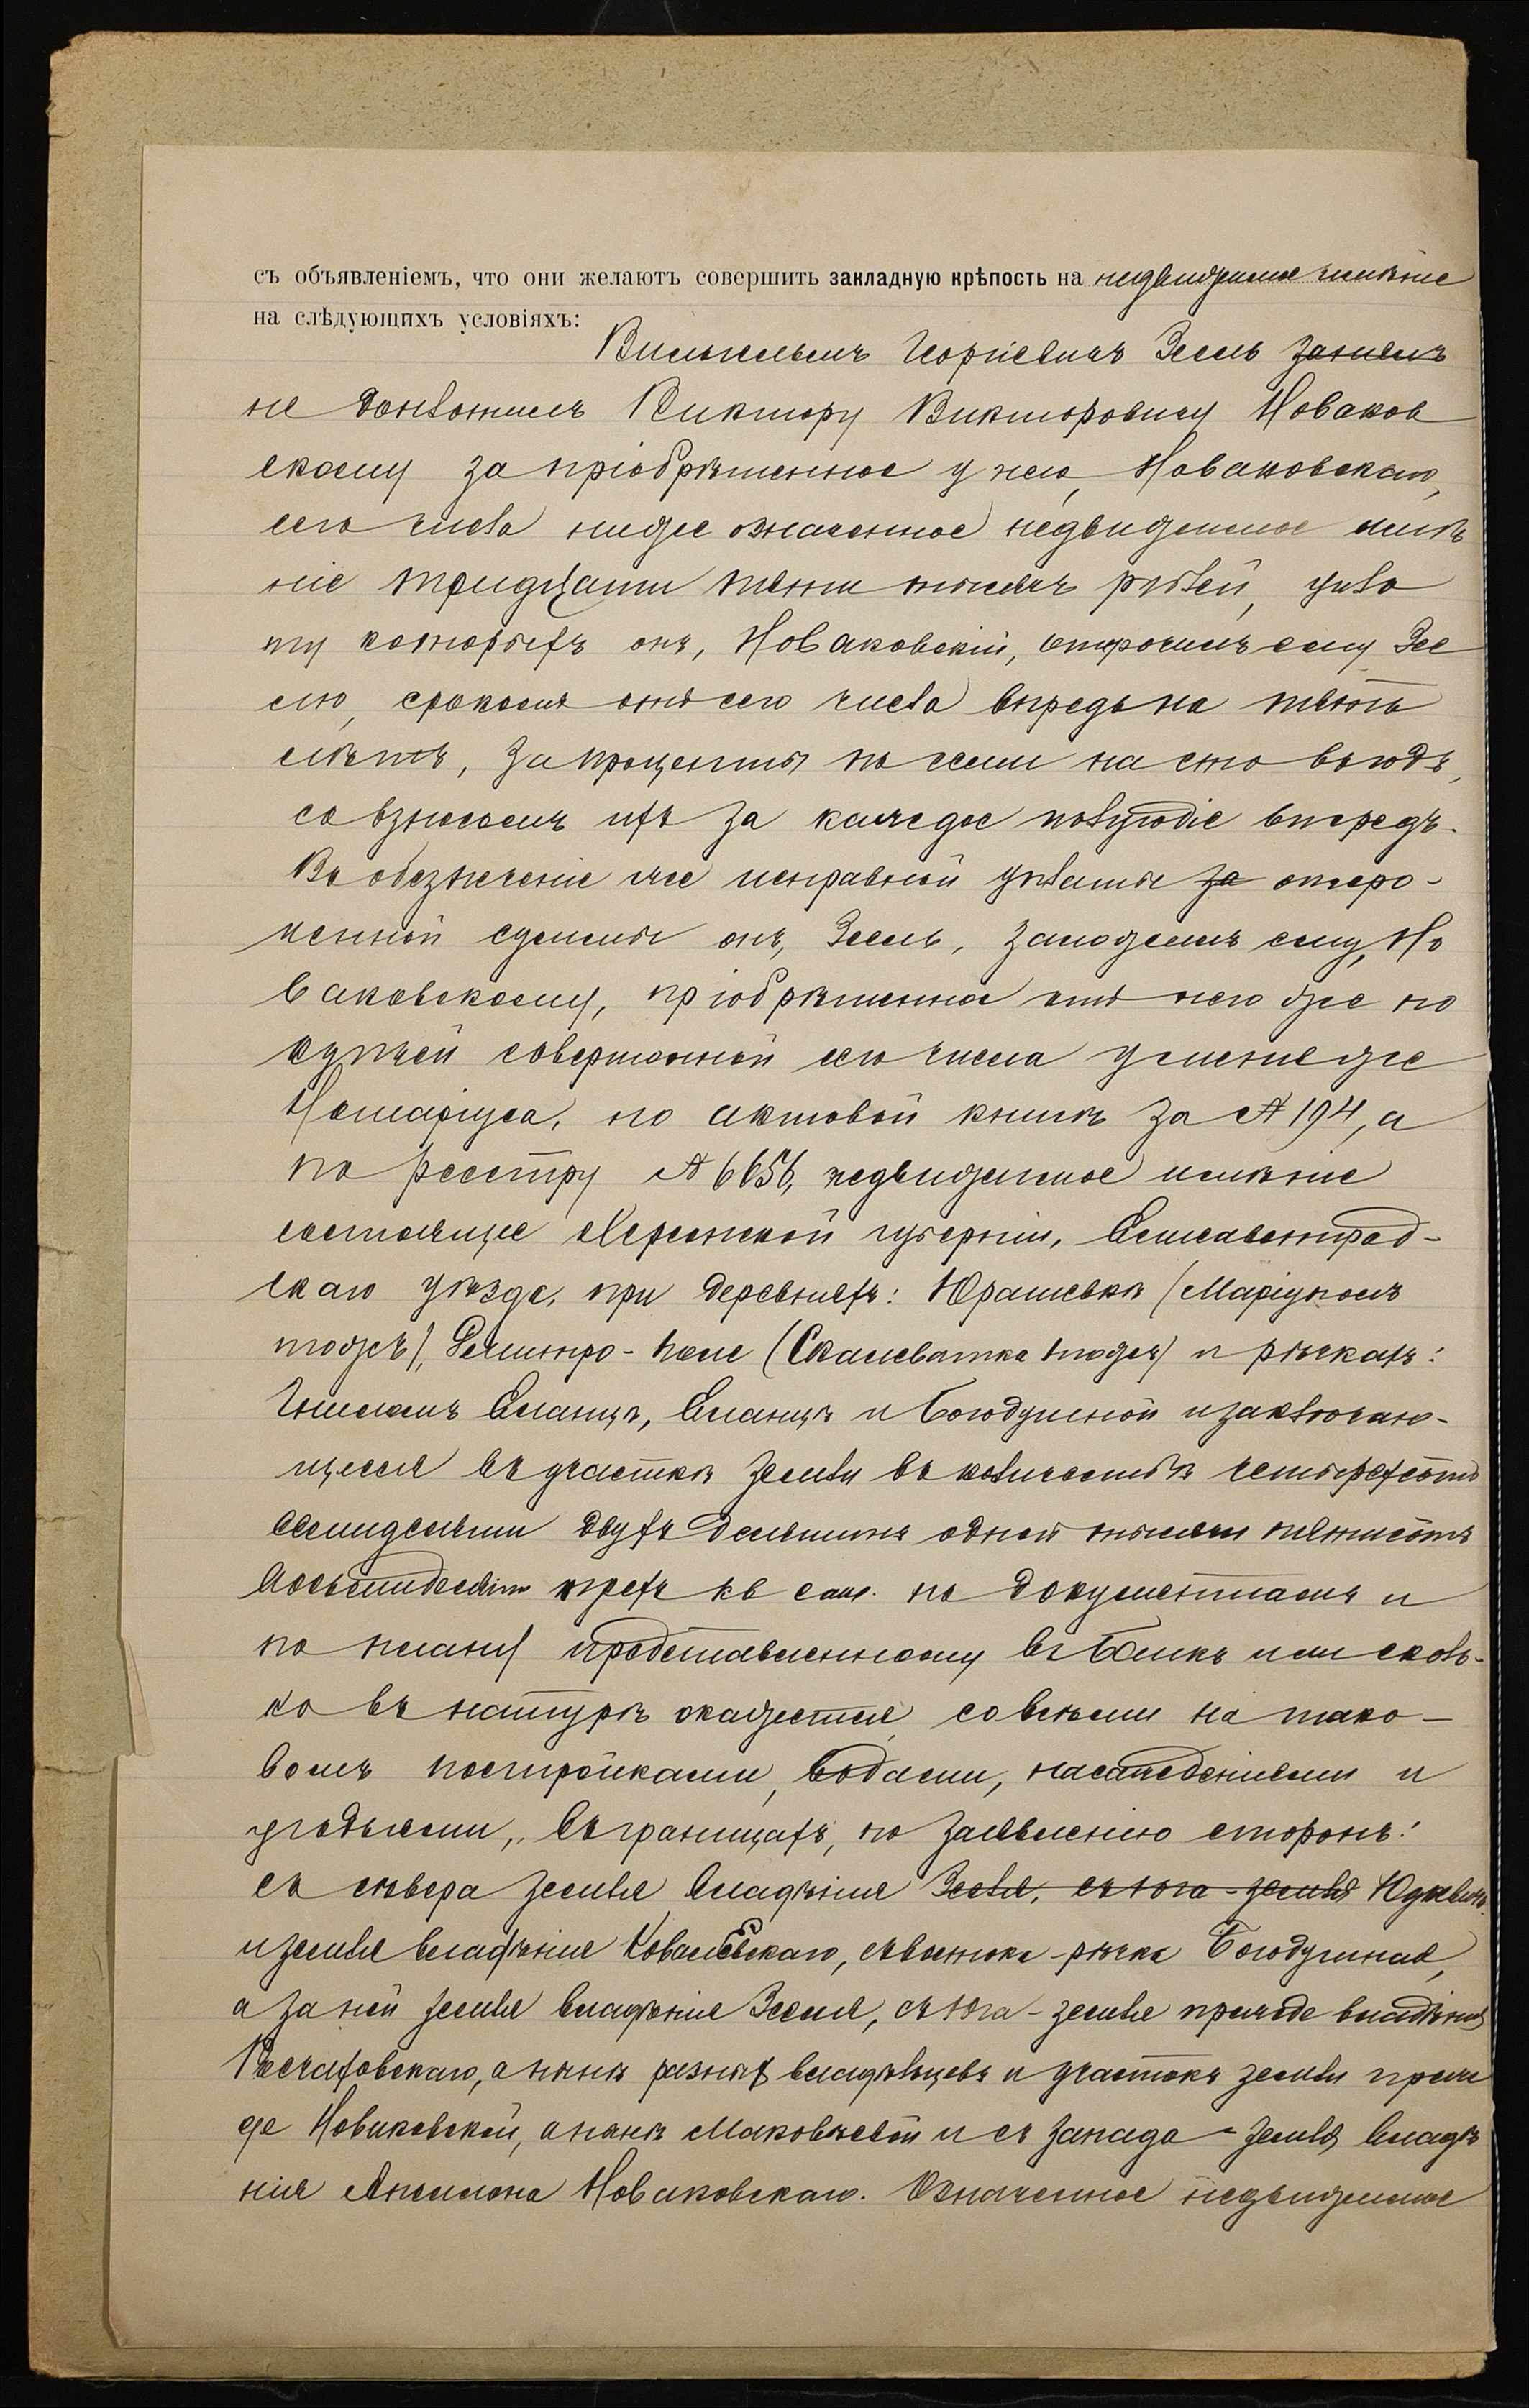 съ объявленіемъ, что они желаютъ совершить закладную крѣпость на недвижимое имѣніе
на слѣдующихъ условіяхъ:
Вильгельмъ Георгіевичъ Зесль
не доплотилъ Виктору Викторовичу Новаков
скому за пріобрѣтенное у него, Новаковскаго,
сего числа ниже означенное недвижимое имѣ
ніе тридцати пяти тысячъ рублей, упла
ту которыхъ онъ, Новаковскій, отсрочилъ ему Зес
лю, срокомъ отъ сего числа впредь на пять
лѣтъ, за проценты по семи на сто въ годъ,
со взносомъ ихъ за каждое полугодіе впередъ.
Въ обезпеченіе же исправной уплаты за отсро-
ченной суммы онъ, Зесль, заложилъ ему, Но
ваковскому, пріобрѣтенное отъ него же по
купчей совершонной сего числа у меня же
Нотаріуса, по актовой книгѣ за № 194, а
по реестру № 6656, недвижимое имѣніе
состоящее Херсонской губерніи, Елисаветград-
скаго уѣзда, при деревняхъ: Юрашевкѣ (Маріуполь
тожъ), -Поле (Скалеватка тожъ) и рѣчкахъ:
Гниломъ Еланцѣ, Еланцѣ и Богодушной и заключаю-
щееся въ участкѣ земли въ количествѣ четырехсотъ
семидесяти двухъ десятинъ одной тысячи пятисотъ
восьмидесяти трехъ кв саж. по документамъ и
по плану представленному въ Банкъ или сколь-
ко въ натурѣ окажется, со всѣми на тако-
вомъ постройками, водами, насажденіями и
угодьями, въ границахъ, по заявленію сторонъ:
съ сѣвера земля владѣнія Зесля, съ юга - земля
и земля владѣнія Ковалевскаго, съ востока - рѣчка Богодушная,
а за ней земля владѣнія Зесля, съ юга - земля прежде владѣнія
а нынѣ разныхъ владѣльцевъ и участокъ земли преж
де Новаковской, а нынѣ Маковѣевой и съ запада - земля владѣ
нія Новаковскаго. Означенное недвижимое